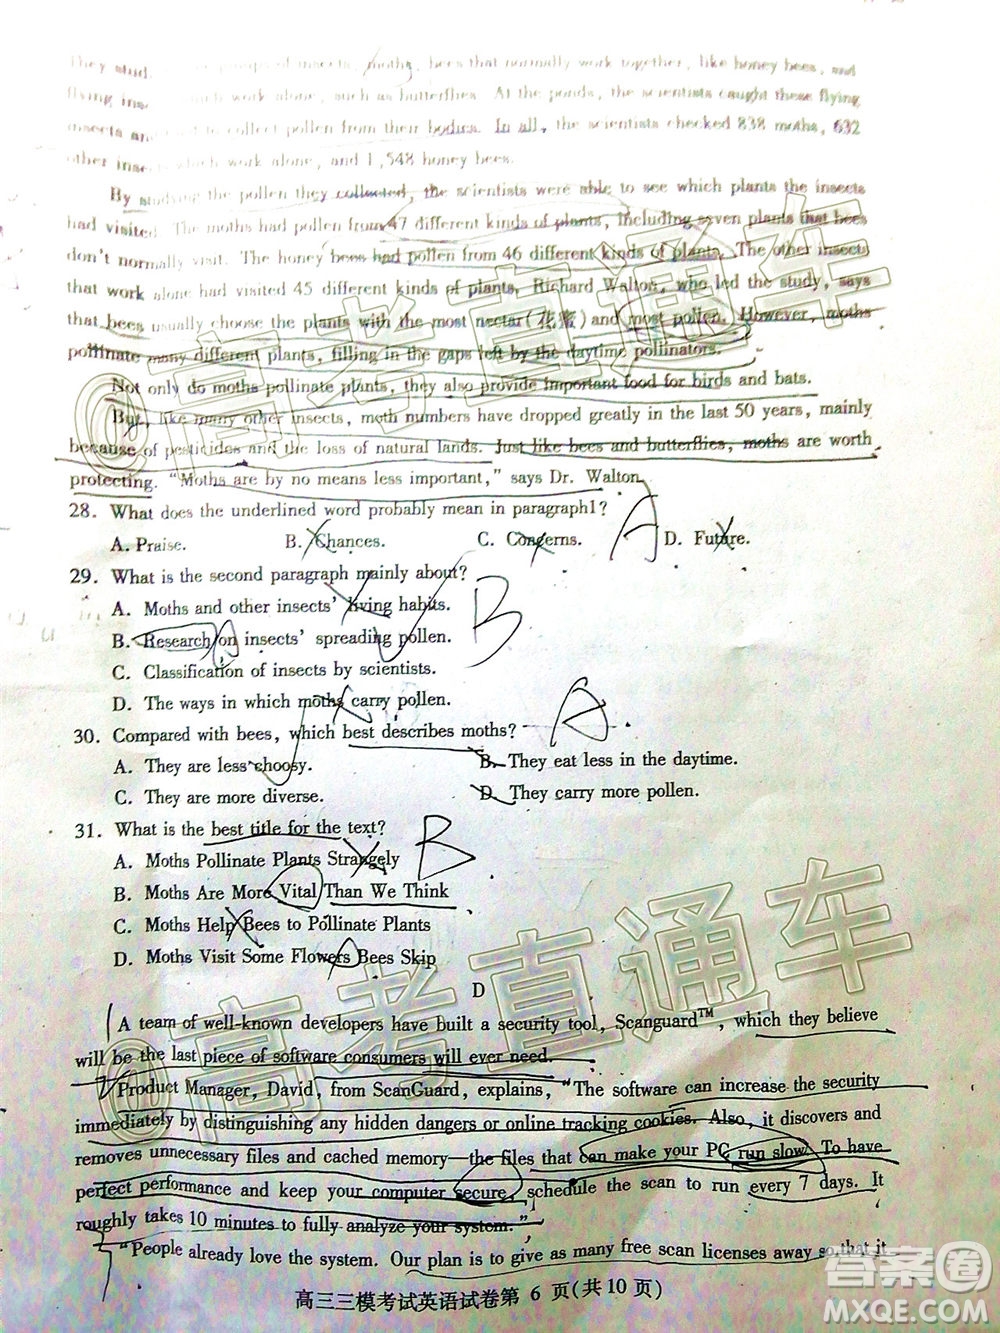 They stud of insects, moths, bees that normally work together, like honey bees, and
flying inse work alone, such as butterflies. At the ponds, the scientists caught these flying
insects and to collect pollen from their bodies. In all, the scientists checked 838 moths, 632
other inse which work alone, and 1,548 honey bees.
By studying the pollen they collected, the scientists were able to see which plants the insects
had visited. The moths had pollen from 47 different kinds of plants, including seven plants that bees
don't normally visit. The honey bees had pollen from 46 different kinds of plants. The other insects
that work alone had visited 45 different kinds of plants. Richard Walton, who led the study, says
that bees usually choose the plants with the most nectar(花蜜) and most pollen. However, moths
pollinate many different plants, filling in the gaps left by the daytime pollinators.
Not only do moths pollinate plants, they also provide important food for birds and bats.
But, like many other insects, moth numbers have dropped greatly in the last 50 years, mainly
because of pesticides and the loss of natural lands. Just like bees and butterflies, moths are worth
protecting. "Moths are by no means less important," says Dr. Walton.
28. What does the underlined word probably mean in paragraph1? A
A. Praise. B. Chances. C. Concerns. D. Future.
29. What is the second paragraph mainly about?
A. Moths and other insects' living habits. B
B. Research on insects' spreading pollen.
C. Classification of insects by scientists.
D. The ways in which moths carry pollen.
30. Compared with bees, which best describes moths? A.
A. They are less choosy. B. They eat less in the daytime.
C. They are more diverse. D. They carry more pollen.
31. What is the best title for the text? B
A. Moths Pollinate Plants Strangely
B. Moths Are More Vital Than We Think
C. Moths Help Bees to Pollinate Plants
D. Moths Visit Some Flowers Bees Skip
D
A team of well-known developers have built a security tool, Scanguard™, which they believe
will be the last piece of software consumers will ever need.
Product Manager, David, from ScanGuard, explains, "The software can increase the security
immediately by distinguishing any hidden dangers or online tracking cookies. Also, it discovers and
removes unnecessary files and cached memory—the files that can make your PC run slow. To have
perfect performance and keep your computer secure, schedule the scan to run every 7 days. It
roughly takes 10 minutes to fully analyze your system."
"People already love the system. Our plan is to give as many free scan licenses away so that it
高三三模考试英语试卷第 6 页(共10页)
@高考直通车
@高考直通车
答案圈
MXQE.COM